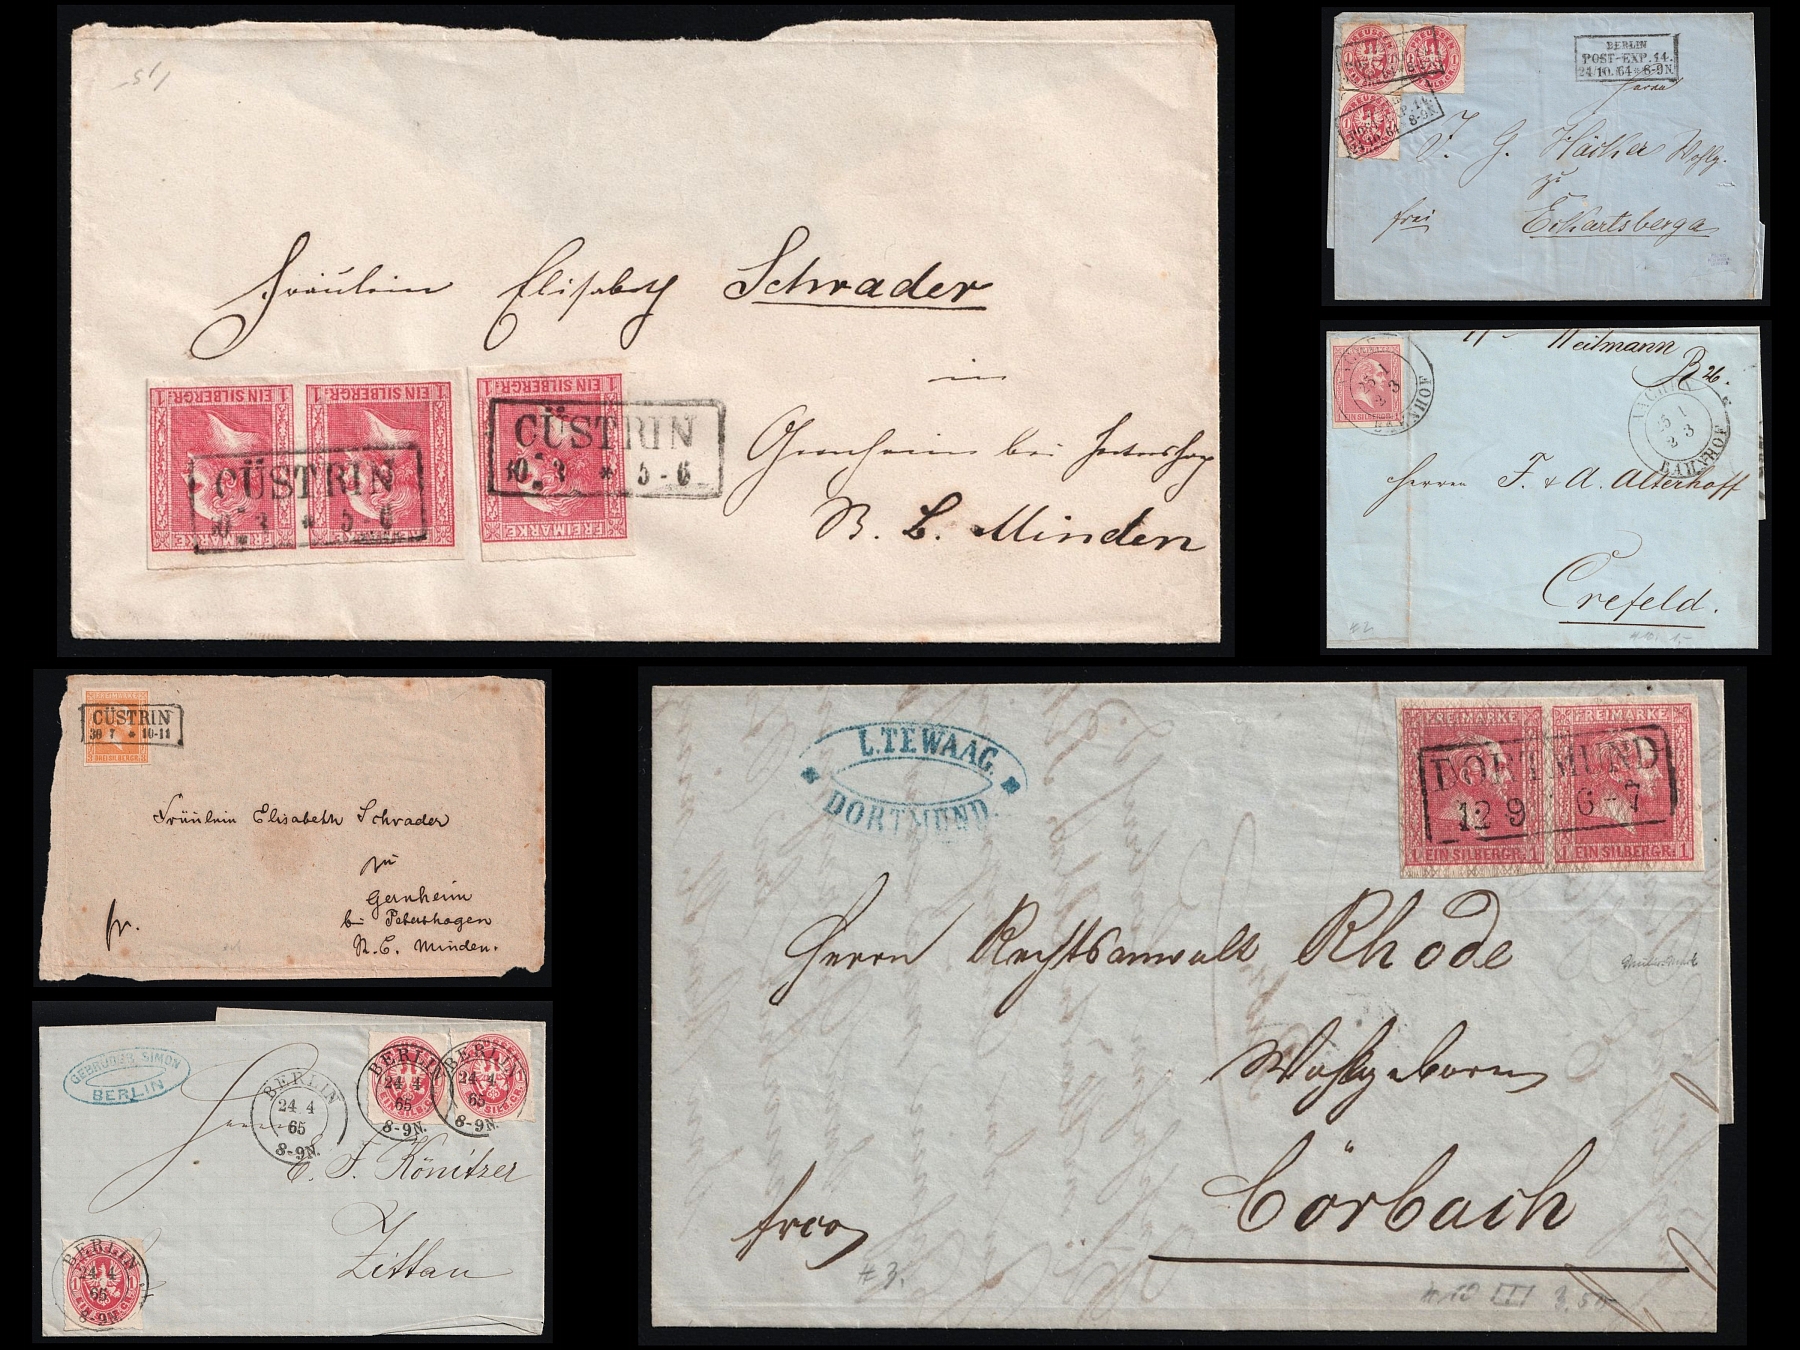 Fräulein Elisabeth Schrader
in
EIN SILBERGR.
1 EIN SILBERGR. 1
1 EIN SILBERGR. 1
FREIMARKE
FREIMARKE
FREIMARKE
CÜSTRIN
5-6
CÜSTRIN
* 5-6
bei
Minden
PREUSSEN
BERLIN
POST-EXP. 14.
24/10.64 * 8-9N.
J. G.
zu
Eckartsberga
frei
Weitmann
25 1
2 3
BAHNHOF
25 1
2 3
BAHNHOF
EIN SILBERGR. 1
Herren F. & A. Alterhoff
Crefeld.
FREIMARKE
CÜSTRIN
30 7 * 10-11
3 DREI SILBERGR. 3
Fräulein Elisabeth Schrader
zu
Gernheim
bei Petershagen
R. B. Minden.
fr.
L. TEWAAG.
DORTMUND.
FREIMARKE
FREIMARKE
DORTMUND
12 9 * 6-7
1 EIN SILBERGR. 1
1 EIN SILBERGR. 1
Herrn Rechtsanwalt Rhode
Wohlgeboren
Corbach
franco
GEBRÜDER SIMON
BERLIN
BERLIN
24 4
65
8-9N.
BERLIN
24 4
65
8-9N.
BERLIN
24 4
65
8-9N.
Herrn
C. F. Könitzer
Zittau
BERLIN
24 4
65
8-9N.